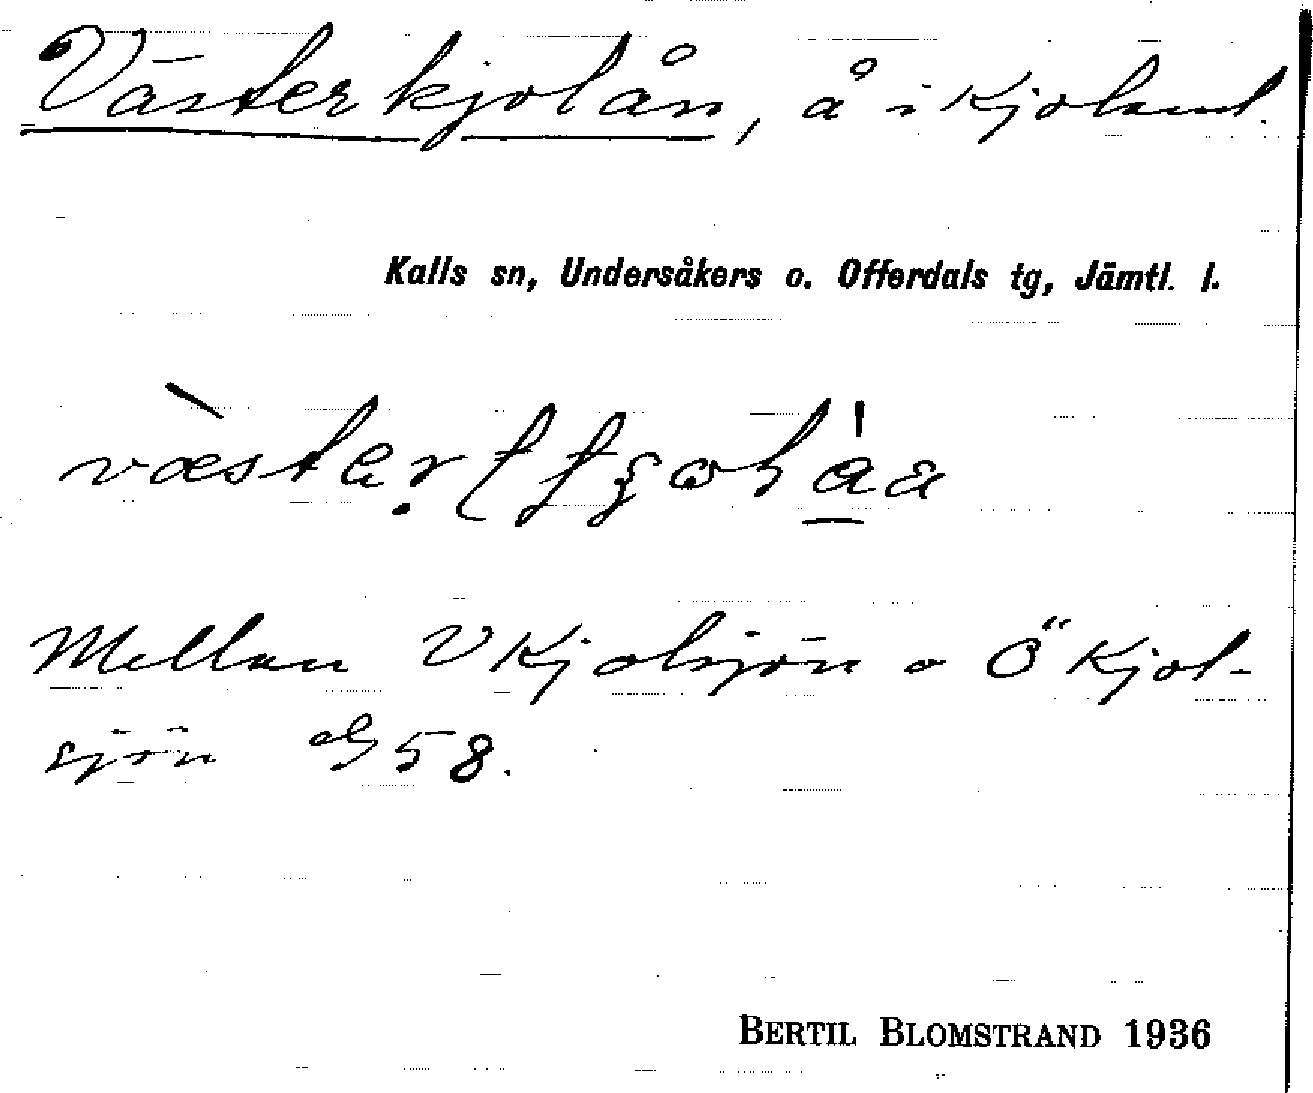 Västerkjolån, å i Kjoland.
Kalls sn, Undersåkers o. Offerdals tg, Jämtl. l.
Mellan V Kjolsjön o Ö Kjol-
sjön 58.
BERTIL BLOMSTRAND 1936